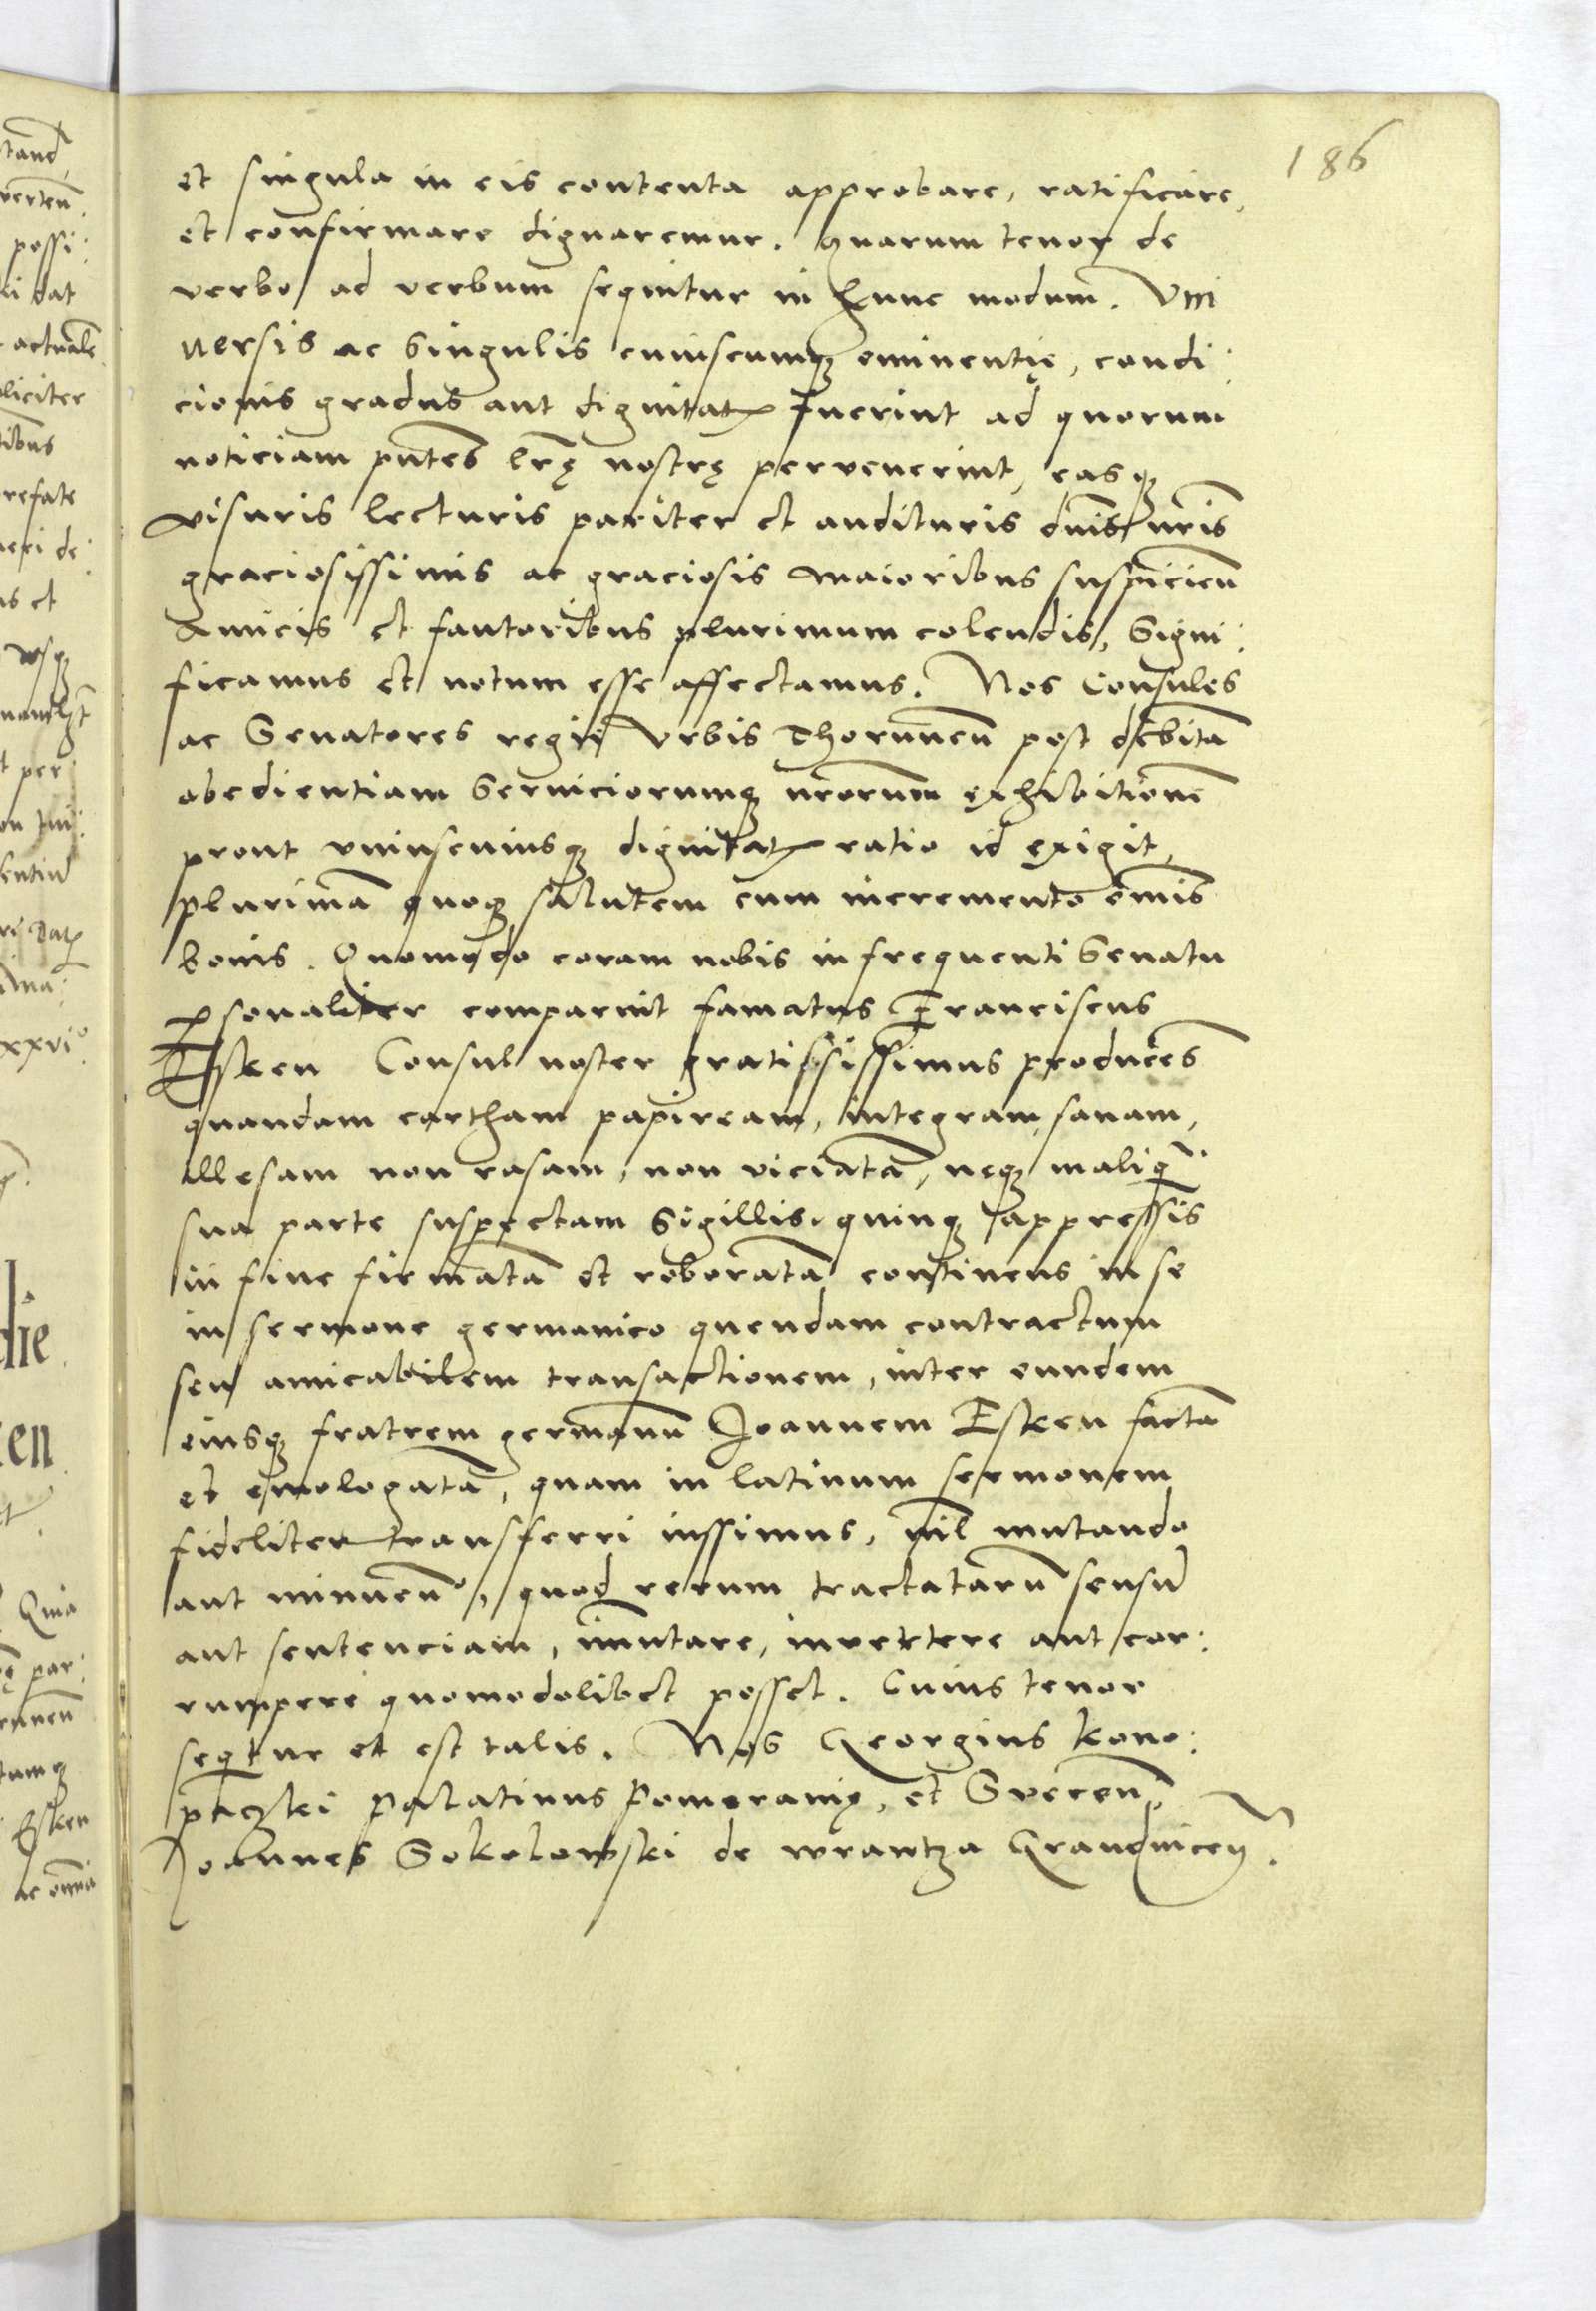 186
et singula in eis contenta approbare, ratificare,
et confirmare dignaremur. quarum tenor de
verbo ad verbum sequitur in hunc modum. Vni
uersis ac singulis cuiuscumqꝫ eminentię, condi:
cionis gradus aut dignitatꝭ fuerint ad quorum
noticiam pn̄tes lr̄ę nostrę pervenerint, easqꝫ
visuris lecturis pariter et audituris dn̄is nr̄is
graciosissimis ac graciosis maioribus suspicien̄
Amicis et fautoribus plurimum colendis, Signi:
ficamus et notum esse affectamus. Nos Consules
ac Senatores regii Vrbis Thorunnen̄ post debitā
obedientiam Seruiciorumqꝫ nr̄orum exhibitionē
prout vniuscuiusqꝫ dignitatꝭ ratio id exigit,
plurimā quoqꝫ salutem cum incremento om̄is
boni. Quomodo coram nobis in frequenti Senatu
ꝑsonaliter comparuit famatus Franciscus
Esken Consul noster gratississimus producēs
quandam cartham papiream, integram, sanam,
illesam non rasam, non viciatā, neqꝫ in aliq̄
sua parte suspectam Sigillis quinqꝫ appressis
in fine firmatā et roboratā continens in se
in sermone germanico quendam contractum
seu amicabilem transactionem, inter eundem
eiusqꝫ fratrem germanū Joannem Esken factā
et emologatā, quam in latinum sermonem
fideliter transferri iussimus, nil mutando
aut minuen̄o, quod rerum tractatarū sensū
aut sentenciam, im̄utare, invertere aut cor:
rumpere quomodolibet posset. Cuius tenor
seqitur et est talis. Nos Georgius kono:
paczki Palatinus Pomeranię, et Svecen̄,
Joannes Sokolowski de wrantza Graudnicen̄.